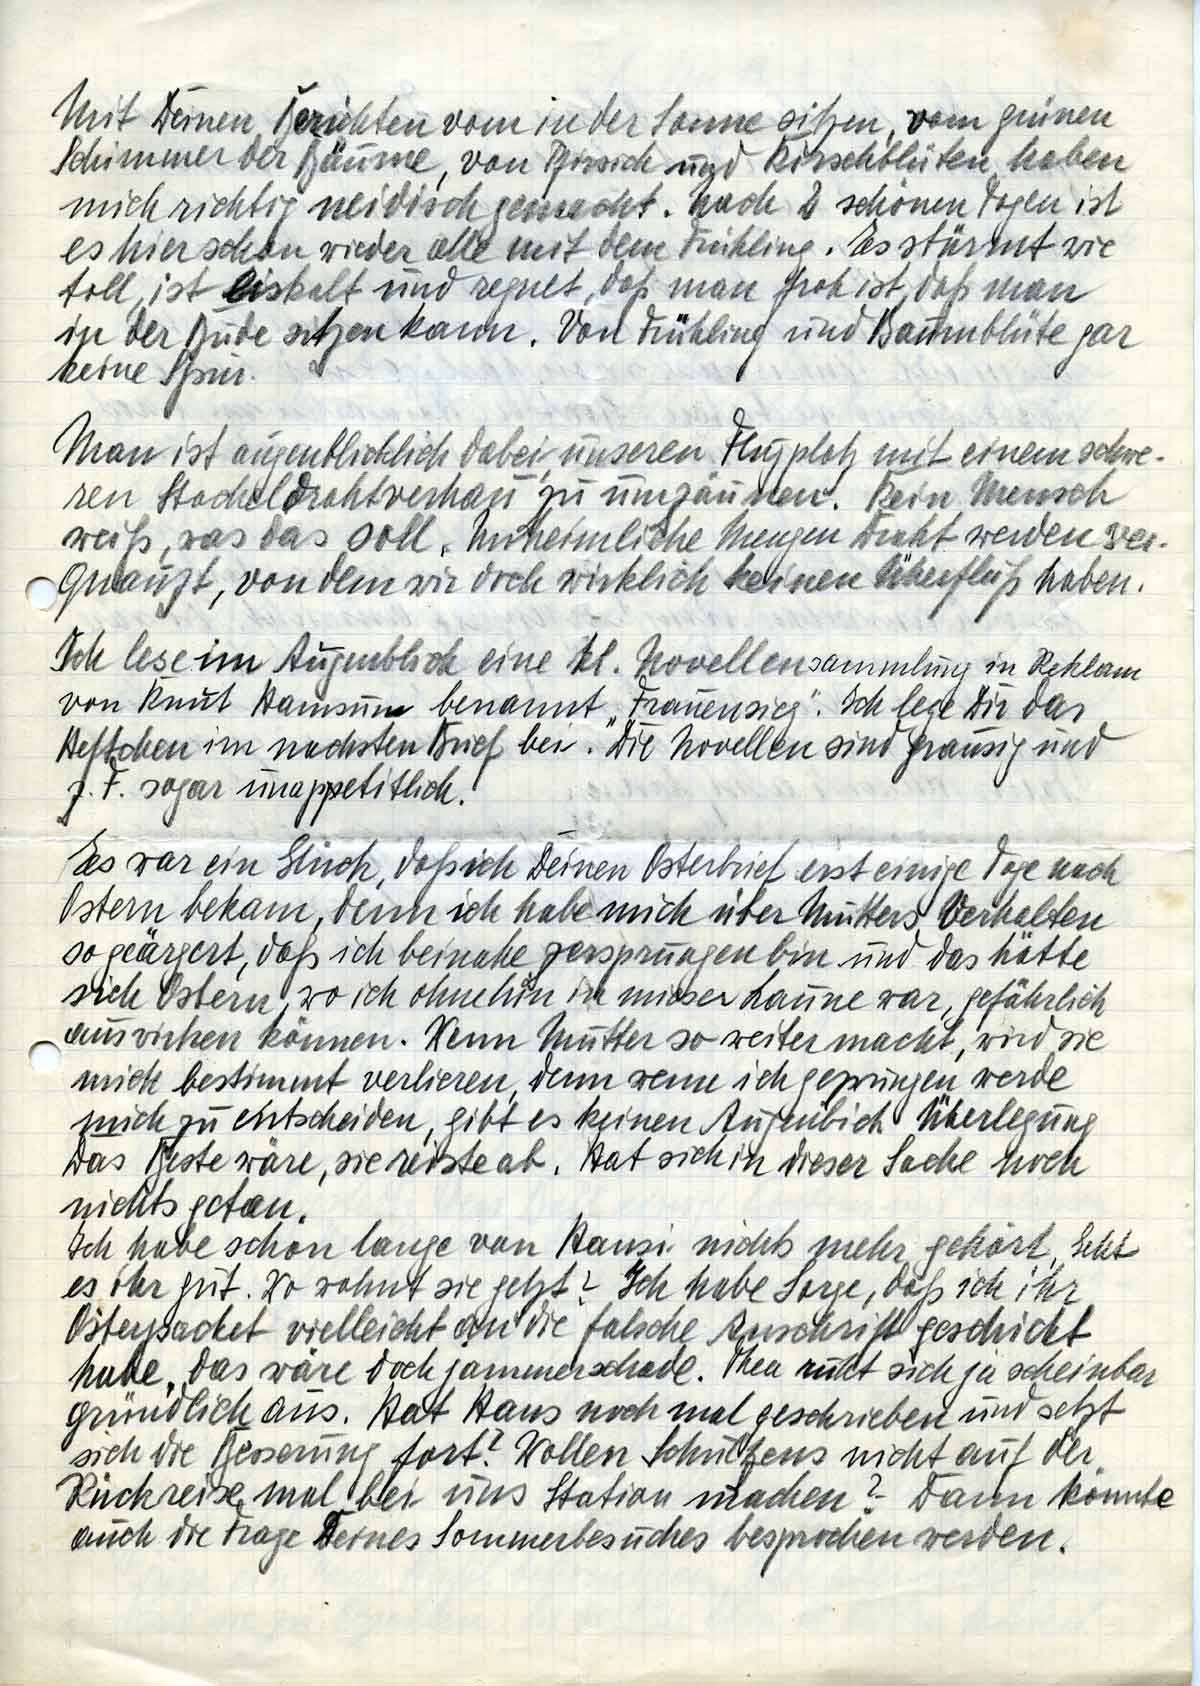 Mit Deinen Berichten vom in der Sonne sitzen, vom grünen
Schimmer der Bäume, von Pfirsich und Kirschblüten haben
mich richtig neidisch gemacht. Nach 2 schönen Tagen ist
es hier schon wieder alle mit dem Frühling. Es stürmt wie
toll, ist eiskalt und regnet, daß man froh ist, daß man
in der Bude sitzen kann. Von Frühling und Baumblüte gar
keine Spur.
Man ist augenblicklich dabei, unseren Flugplatz mit einem schwe-
ren Stacheldrahtverhau zu umzäunen. Kein Mensch
weiß, was das soll. Unheimliche Mengen Draht werden ver-
, von dem wir doch wirklich keinen Überfluß haben.
Ich lese im Augenblick eine kl. Novellensammlung in Reklam
von Knut Hamsum benannt „Frauensieg". Ich lege Dir das
Heftchen im nächsten Brief bei. Die Novellen sind grausig und
z.T. sogar unappetitlich.
Es war ein Glück, daß ich Deinen Osterbrief erst einige Tage nach
Ostern bekam, denn ich habe mich über Mutters Verhalten
so geärgert, daß ich beinahe zersprungen bin und das hätte
sich Ostern, wo ich ohnehin in mieser Laune war, gefährlich
auswirken können. Wenn Mutter so weiter macht, wird sie
mich bestimmt verlieren, denn wenn ich gezwungen werde
mich zu entscheiden, gibt es keinen Augenblick Überlegung
Das Beste wäre, sie reiste ab. Hat sich in dieser Sache noch
nichts getan.
Ich habe schon lange von Hansi nichts mehr gehört. Geht
es ihr gut. Wo wohnt sie jetzt? Ich habe Sorge, daß ich ihr
Osterpacket vielleicht an die falsche Anschrift geschickt
habe, das wäre doch jammerschade. Thea ruht sich ja scheinbar
gründlich aus. Hat Hans noch mal geschrieben und setzt
sich die Besserung fort? Wollen Schultzens nicht auf der
Rückreise mal bei uns Station machen? Dann könnte
auch die Frage Deines Sommerbesuches besprochen werden.